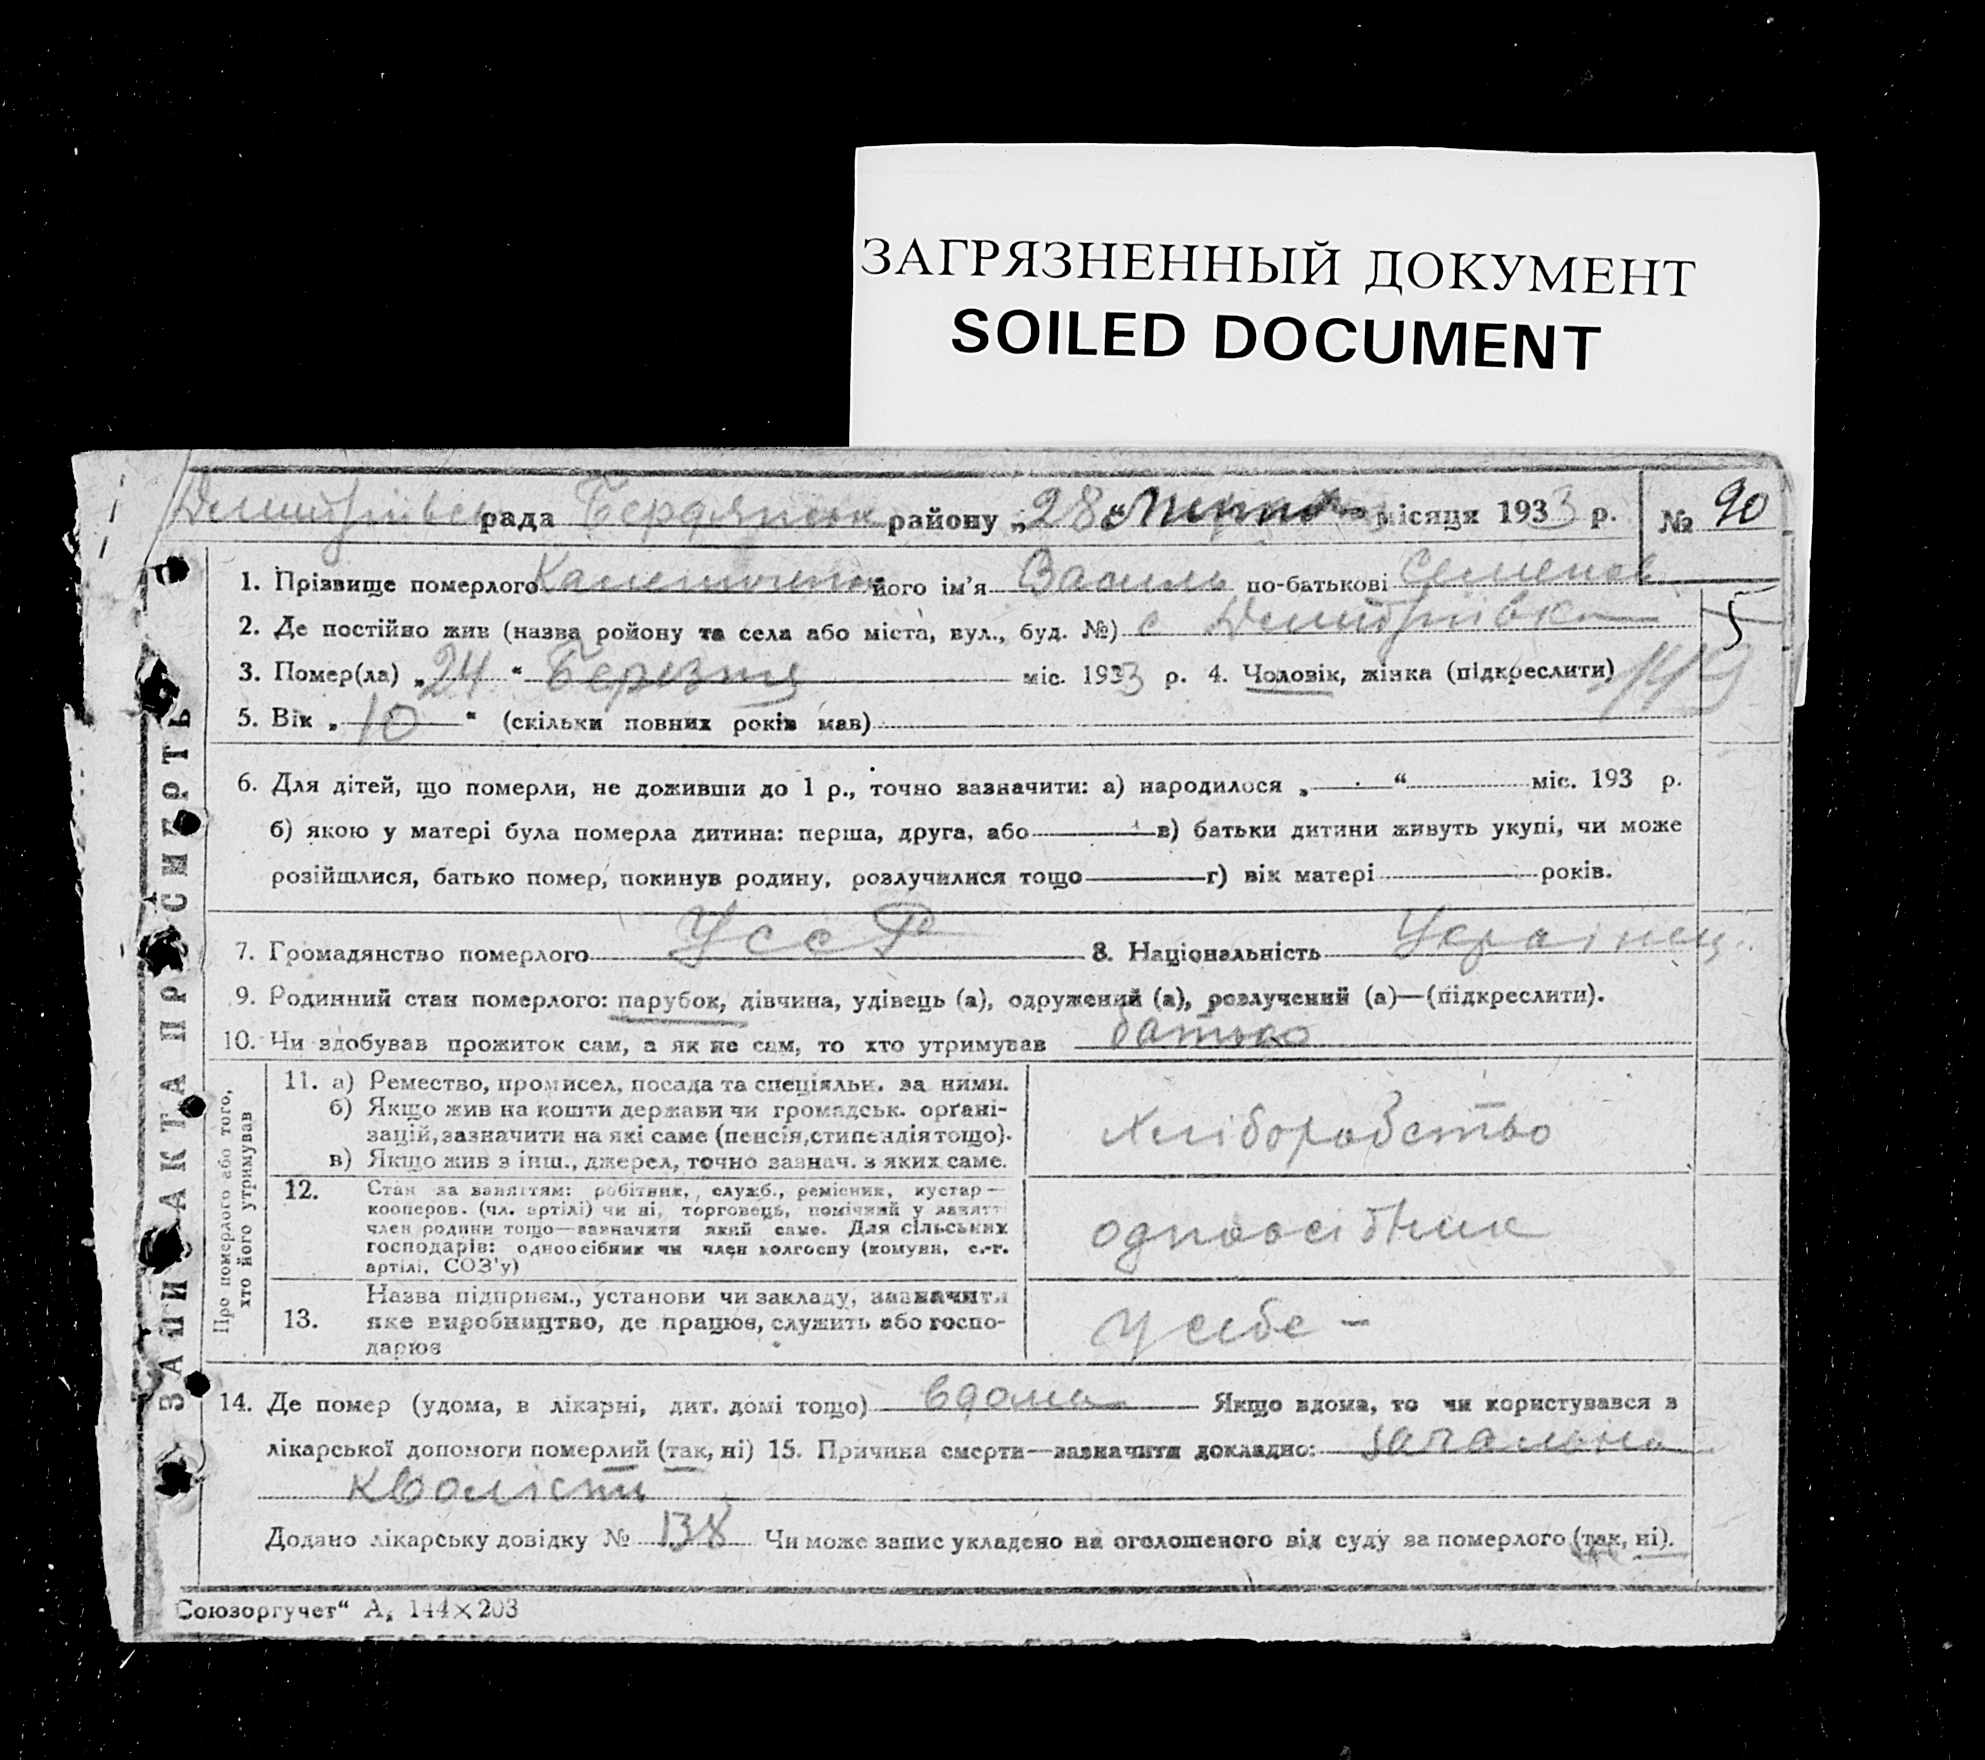 ЗАГРЯЗНЕННЫЙ ДОКУМЕНТ
SOILED DOCUMENT
рада Бердянськ району „28“ місяця 1933 р. № 90
1. Прізвище померлого його ім'я Василь по-батькові Семенов
2. Де постійно жив (назва ройону та села або міста, вул., буд. №) с Дмитрівка 5
3. Помер(ла) „24“ Березня міс. 1933 р. 4. Чоловік, жінка (підкреслити) 149
5. Вік „10“ (скільки повних років мав)
6. Для дітей, що померли, не доживши до 1 р., точно зазначити: а) народилося „ “ міс. 193 р.
б) якою у матері була померла дитина: перша, друга, або в) батьки дитини живуть укупі, чи може
розійшлися, батько помер, покинув родину, розлучилися тощо г) вік матері років.
7. Громадянство померлого УССР 8. Національність Українець
9. Родинний стан померлого: парубок, дівчина, удівець (а), одружений (а), розлучений (а)—(підкреслити).
10. Чи здобував прожиток сам, а як не сам, то хто утримував батько
Про померлого або того,
хто його утримував
11. а) Ремество, промисел, посада та спеціяльн. за ними.
б) Якщо жив на кошти держави чи громадськ. орґані-
зацій, зазначити на які саме (пенсія, стипендія тощо).
в) Якщо жив з інш., джерел, точно зазнач. з яких саме.
Хліборобство
12. Стан за заняттям: робітник, служб., ремісник, кустар—
кооперов. (чл. артілі) чи ні, торговець, помічний у занятті
член родини тощо—зазначити який саме. Для сільських
господарів: одноосібник чи член колгоспу (комуни, с.-г.
артілі, СОЗ'у)
одноосібник
13. Назва підприєм., установи чи закладу, зазначити
яке виробництво, де працює, служить або госпо-
дарює
у себе -
14. Де помер (удома, в лікарні, дит. домі тощо) вдома Якщо вдома, то чи користувався в
лікарської допомоги померлий (так, ні) 15. Причина смерти—зазначити докладно: загальна
кволість
Додано лікарську довідку № 138 Чи може запис укладено на оголошеного від суду за померлого (так, ні).
Союзоргучет“ А, 144×203
ЗАПИС АКТА ПРО СМЕРТЬ